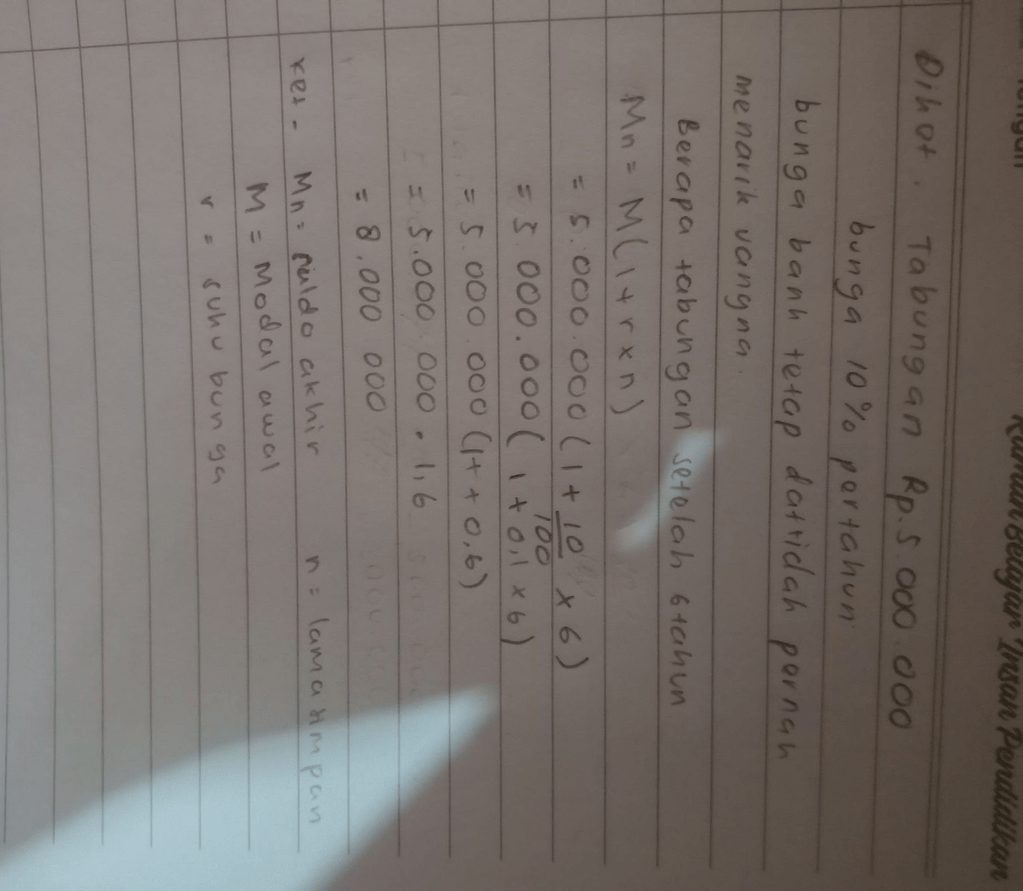 Dihot. Tabungan Rp.5.000.000
bunga 10% partahun
bunga banh tetap dattidah pornah
menarik vangna.
Berapa tabungan setelah 6tahun
Mn = M(1+rxn)
= 5.000.000 (1+ 10/100 x 6)
= 5.000.000 (1+0,1 x 6)
= 5.000.000 (1++0,6)
= 5.000.000 • 1,6
= 8.000 000
ket. Mn = saldo akhir n = lama simpan
M = Modal awal
r = suhu bunga